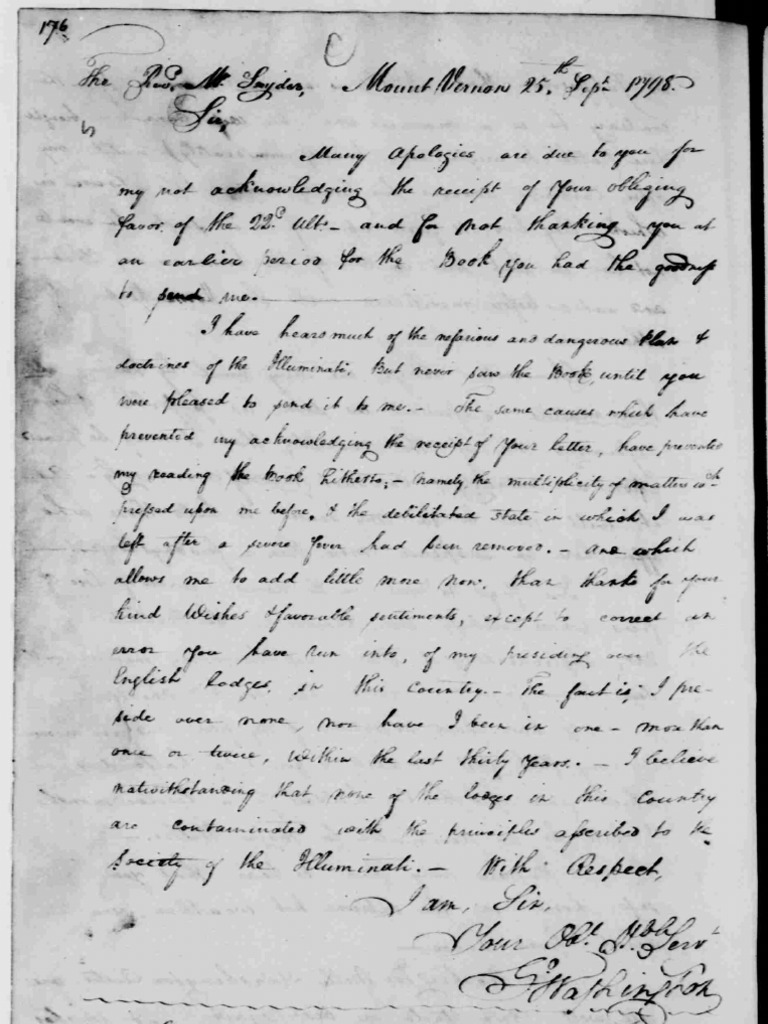 176
The Revd. Mr. Snyder, Mount Vernon 25.th Sepr. 1798.
Sir,
Many Apologies are due to you for
my not acknowledging the receipt of your obliging
favor. of the 22d. Ulto.— and for not thanking you at
an earlier period for the Book you had the goodness
to send me.—
I have heard much of the nefarious and dangerous Plan &
doctrines of the Illuminati, but never saw the Book, until you
were pleased to send it to me.— The same causes which have
prevented my acknowledging the receipt of your letter, have prevented
my reading the book hitherto;— namely, the multiplicity of matters wch.
pressed upon me before, & the debilitated state in which I was
left after a severe fever had been removed.— and which
allows me to add little more now, than thanks for your
kind Wishes & favorable sentiments, except to correct an
error you have run into, of my presiding over the
English Lodges, in this Country.— The fact is, I pre-
side over none, nor have I been in one — more than
once or twice, within the last thirty years.— I believe
notwithstanding that none of the lodges in this Country
are contaminated with the principles ascribed to the
Society of the Illuminati.— With Respect,
I am, Sir,
Your Obt. Hble Servt.
Go. Washington